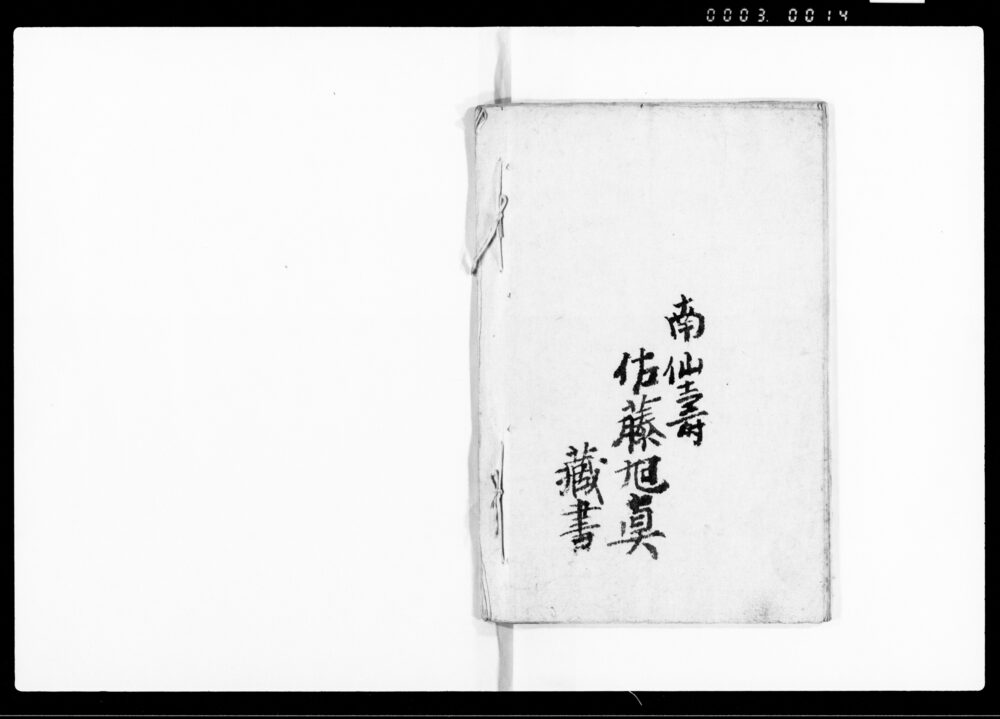 0003. 0014
南仙壽
佐藤旭眞
藏書